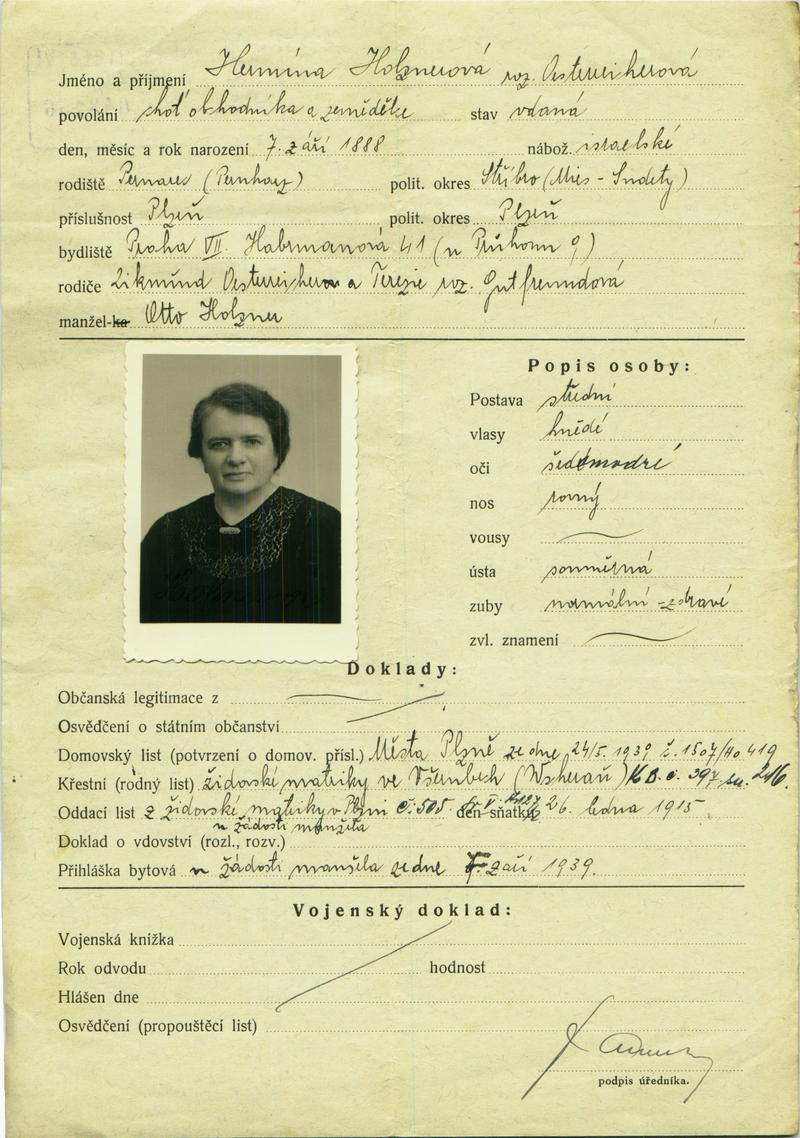 Jméno a příjmení Hermína Holznerová roz. Oesterreicherová
povolání choť obchodníka a zemědělce stav vdaná
den, měsíc a rok narození 7. září 1888 nábož. israelské
rodiště Pernarec (Pernharz) polit. okres Stříbro (Mies - Sudety)
příslušnost Plzeň polit. okres Plzeň
bydliště Praha VII. Habrmanová 41 (u Průhonu 9)
rodiče Zikmund Oesterreicher a Terezie roz. Gutfreundová
manžel-ka Otto Holzner
Popis osoby:
Postava střední
vlasy hnědé
oči šedomodré
nos rovný
vousy
ústa souměrná
zuby normální - zdravé
zvl. znamení
Doklady:
Občanská legitimace z
Osvědčení o státním občanství
Domovský list (potvrzení o domov. přísl.) Města Plzně ze dne 24/5. 1939 č. 1507/Ho 419
Křestní (rodný list) židovské matriky ve Všerubech (Wscherau) č. 397 216.
Oddací list z židovské matriky v Plzni č. 505 den sňatku 26. ledna 1915
u žádosti manžela
Doklad o vdovství (rozl., rozv.)
Přihláška bytová u žádosti manžela ze dne září 1939.
Vojenský doklad:
Vojenská knížka
Rok odvodu hodnost
Hlášen dne
Osvědčení (propouštěcí list)
podpis úředníka.